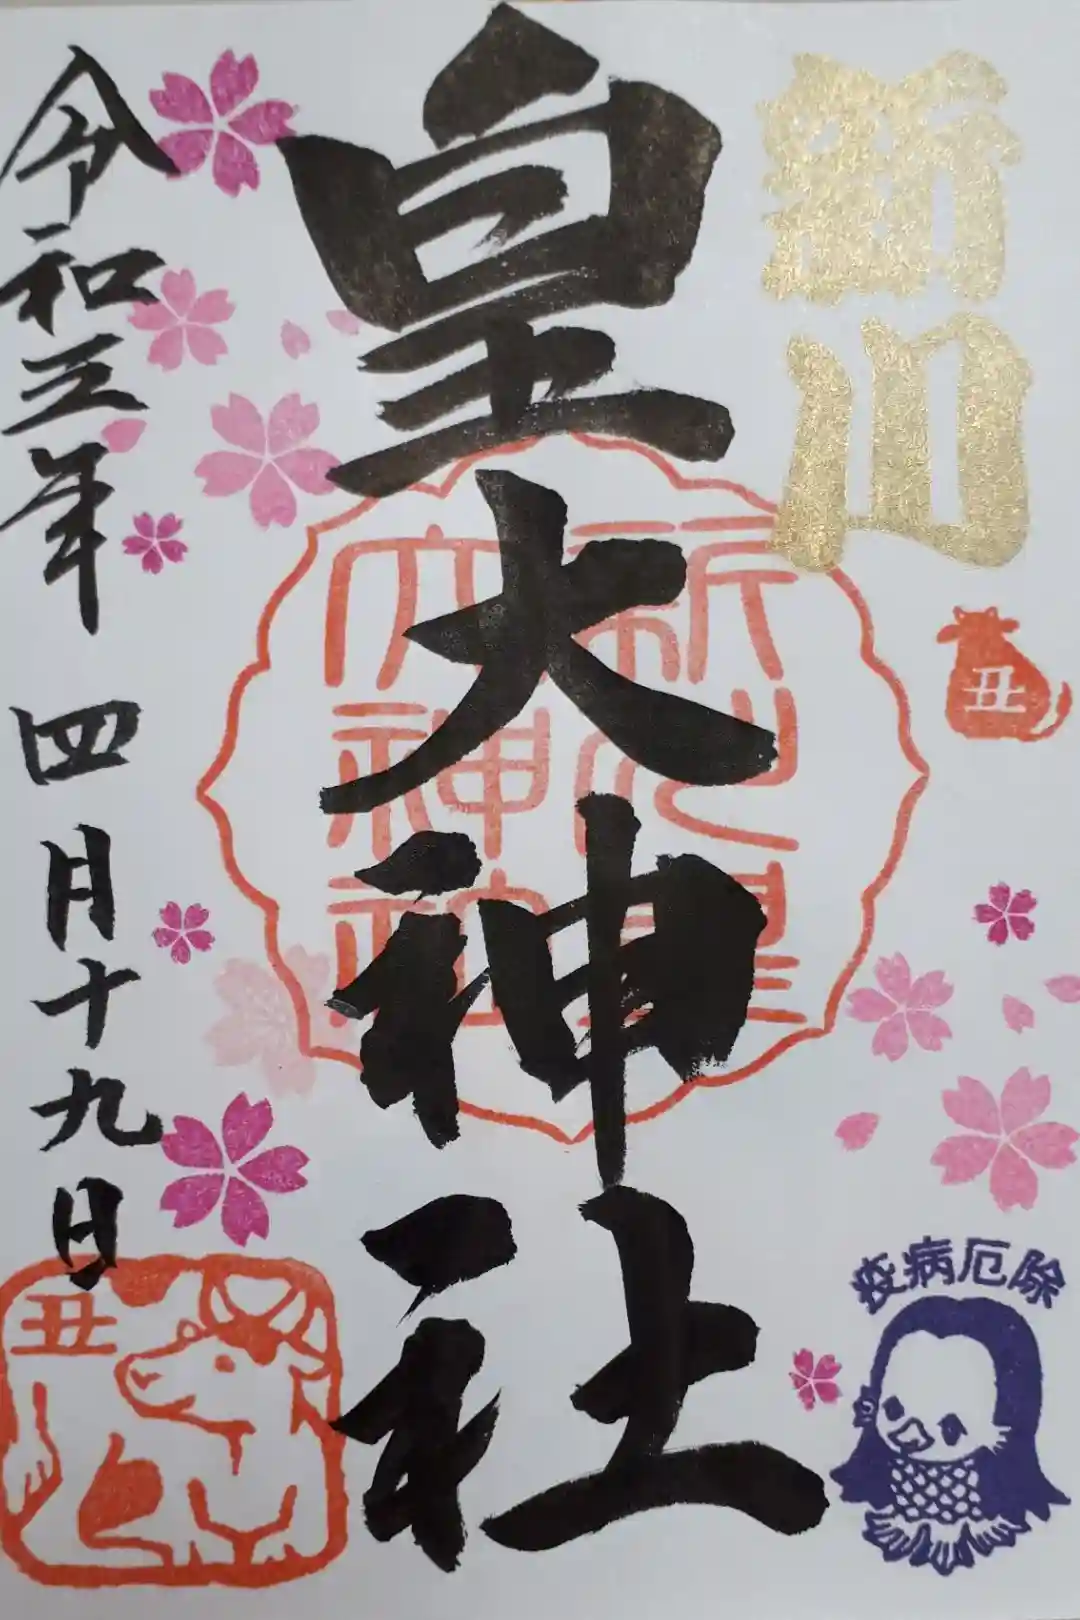 新川
丑
疫病厄除
皇大神社
大神社
令和三年 四月十九日
丑